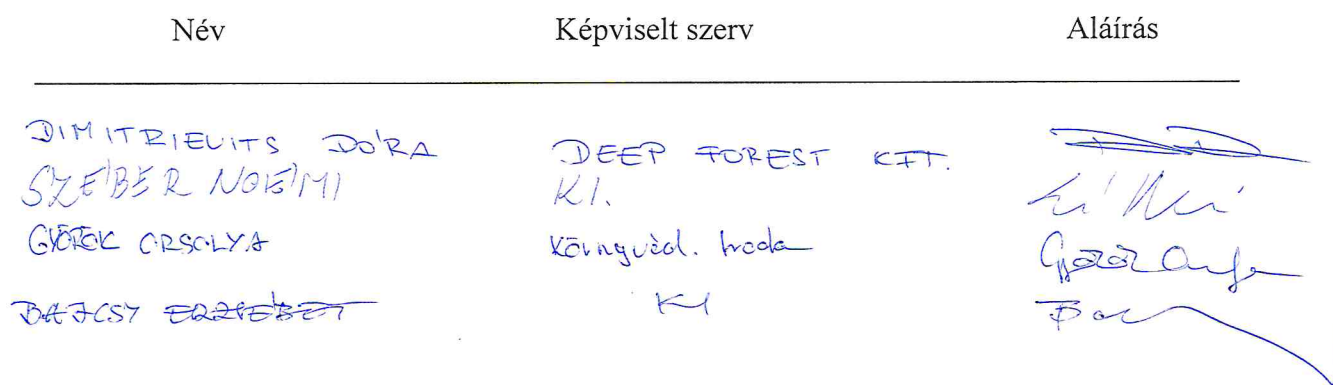 Név Képviselt szerv Aláírás
DIMITRIEVITS DÓRA DEEP FOREST KFT.
SZÉBER NOÉMI KI.
GYÖRÖK ORSOLYA Környvéd. Iroda
BAJCSY ERZSÉBET KI